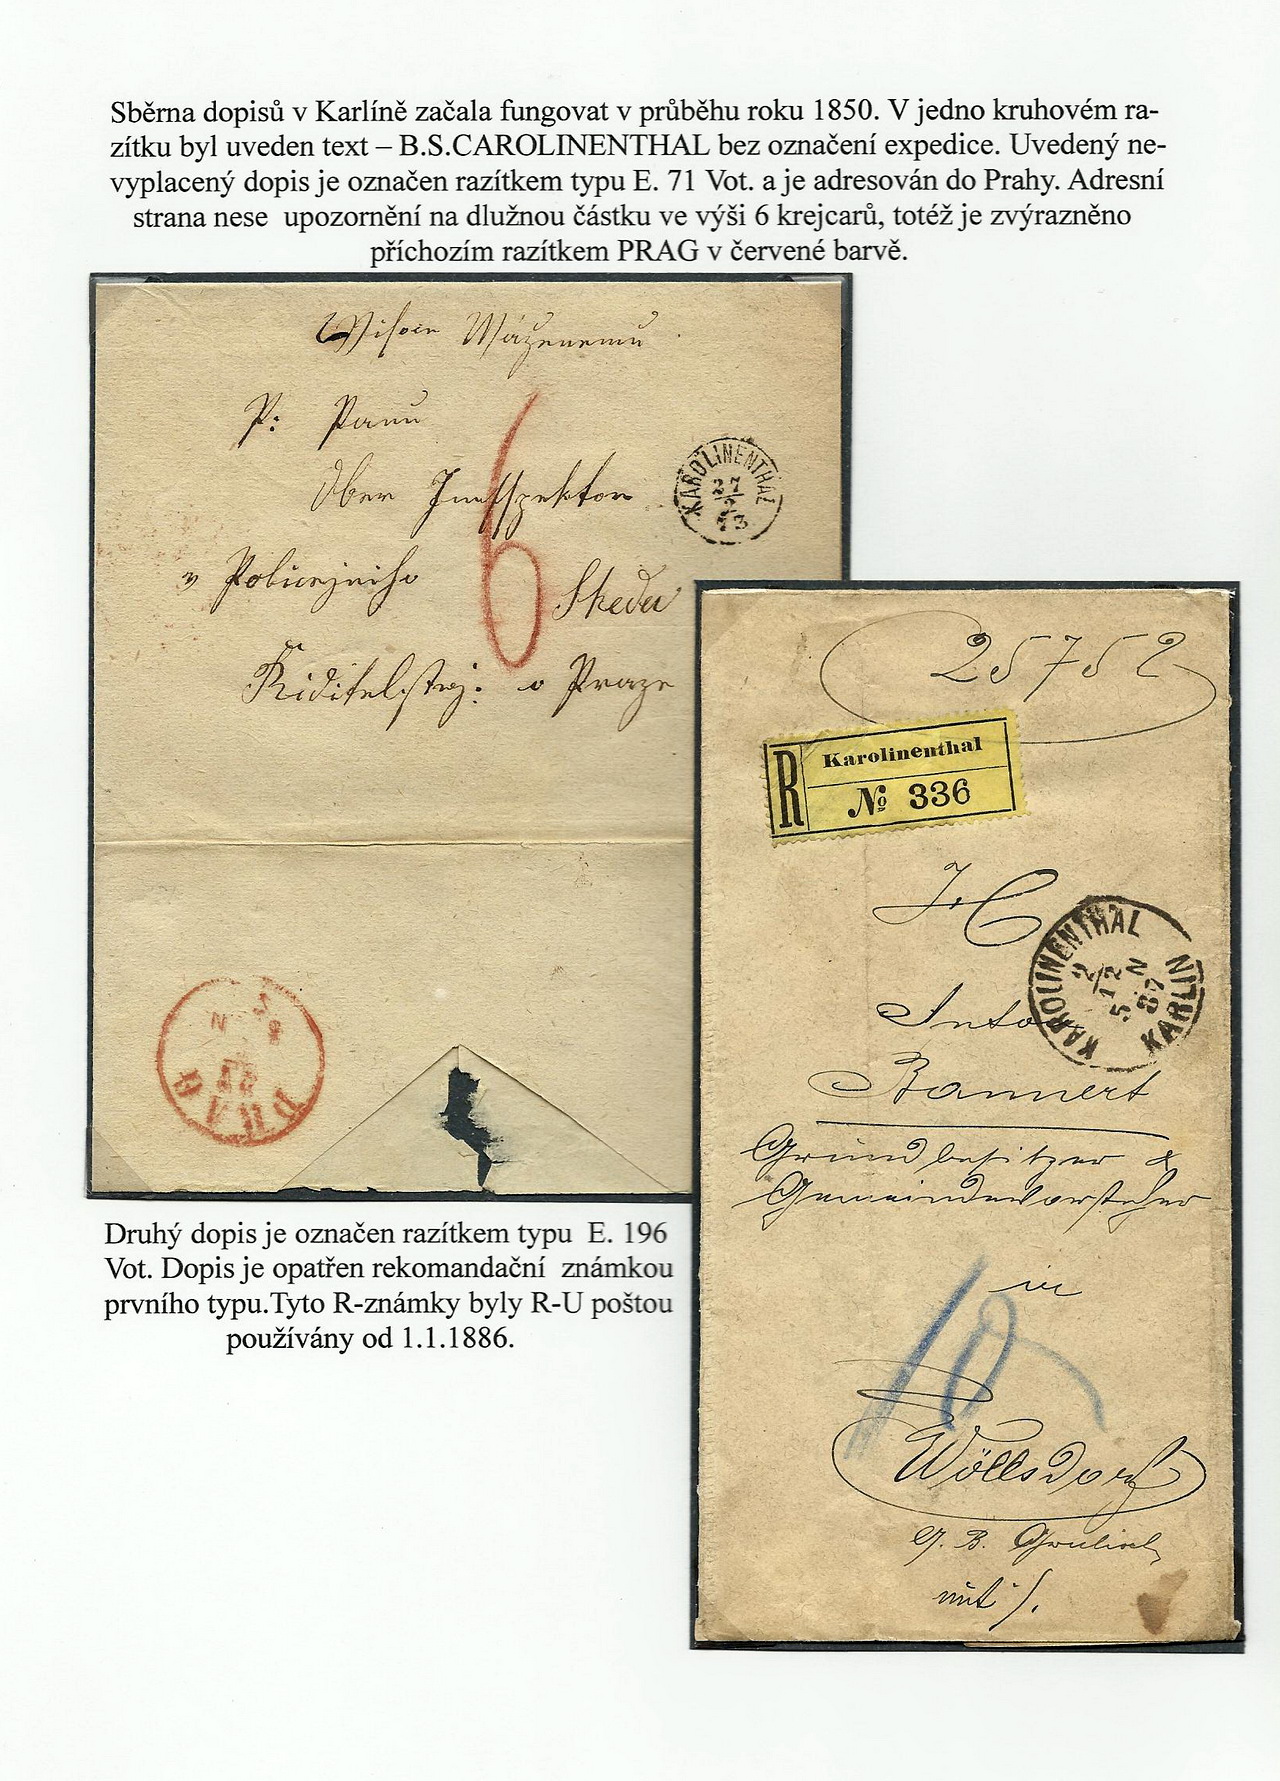 Sběrna dopisů v Karlíně začala fungovat v průběhu roku 1850. V jedno kruhovém ra-
zítku byl uveden text – B.S.CAROLINENTHAL bez označení expedice. Uvedený ne-
vyplacený dopis je označen razítkem typu E. 71 Vot. a je adresován do Prahy. Adresní
strana nese  upozornění na dlužnou částku ve výši 6 krejcarů, totéž je zvýrazněno
příchozím razítkem PRAG v červené barvě.
P: Panu
6
Ober
KAROLINENTHAL
27
v Praze
PRAG
25752
R
Karolinenthal
№ 336
KAROLINENTHAL
2/12
5 N
87
KARLIN
Bannert
Grundbesitzer &
Gemeindevorsteher
in
10
Wöllsdorf
Druhý dopis je označen razítkem typu  E. 196
Vot. Dopis je opatřen rekomandační  známkou
prvního typu.Tyto R-známky byly R-U poštou
používány od 1.1.1886.